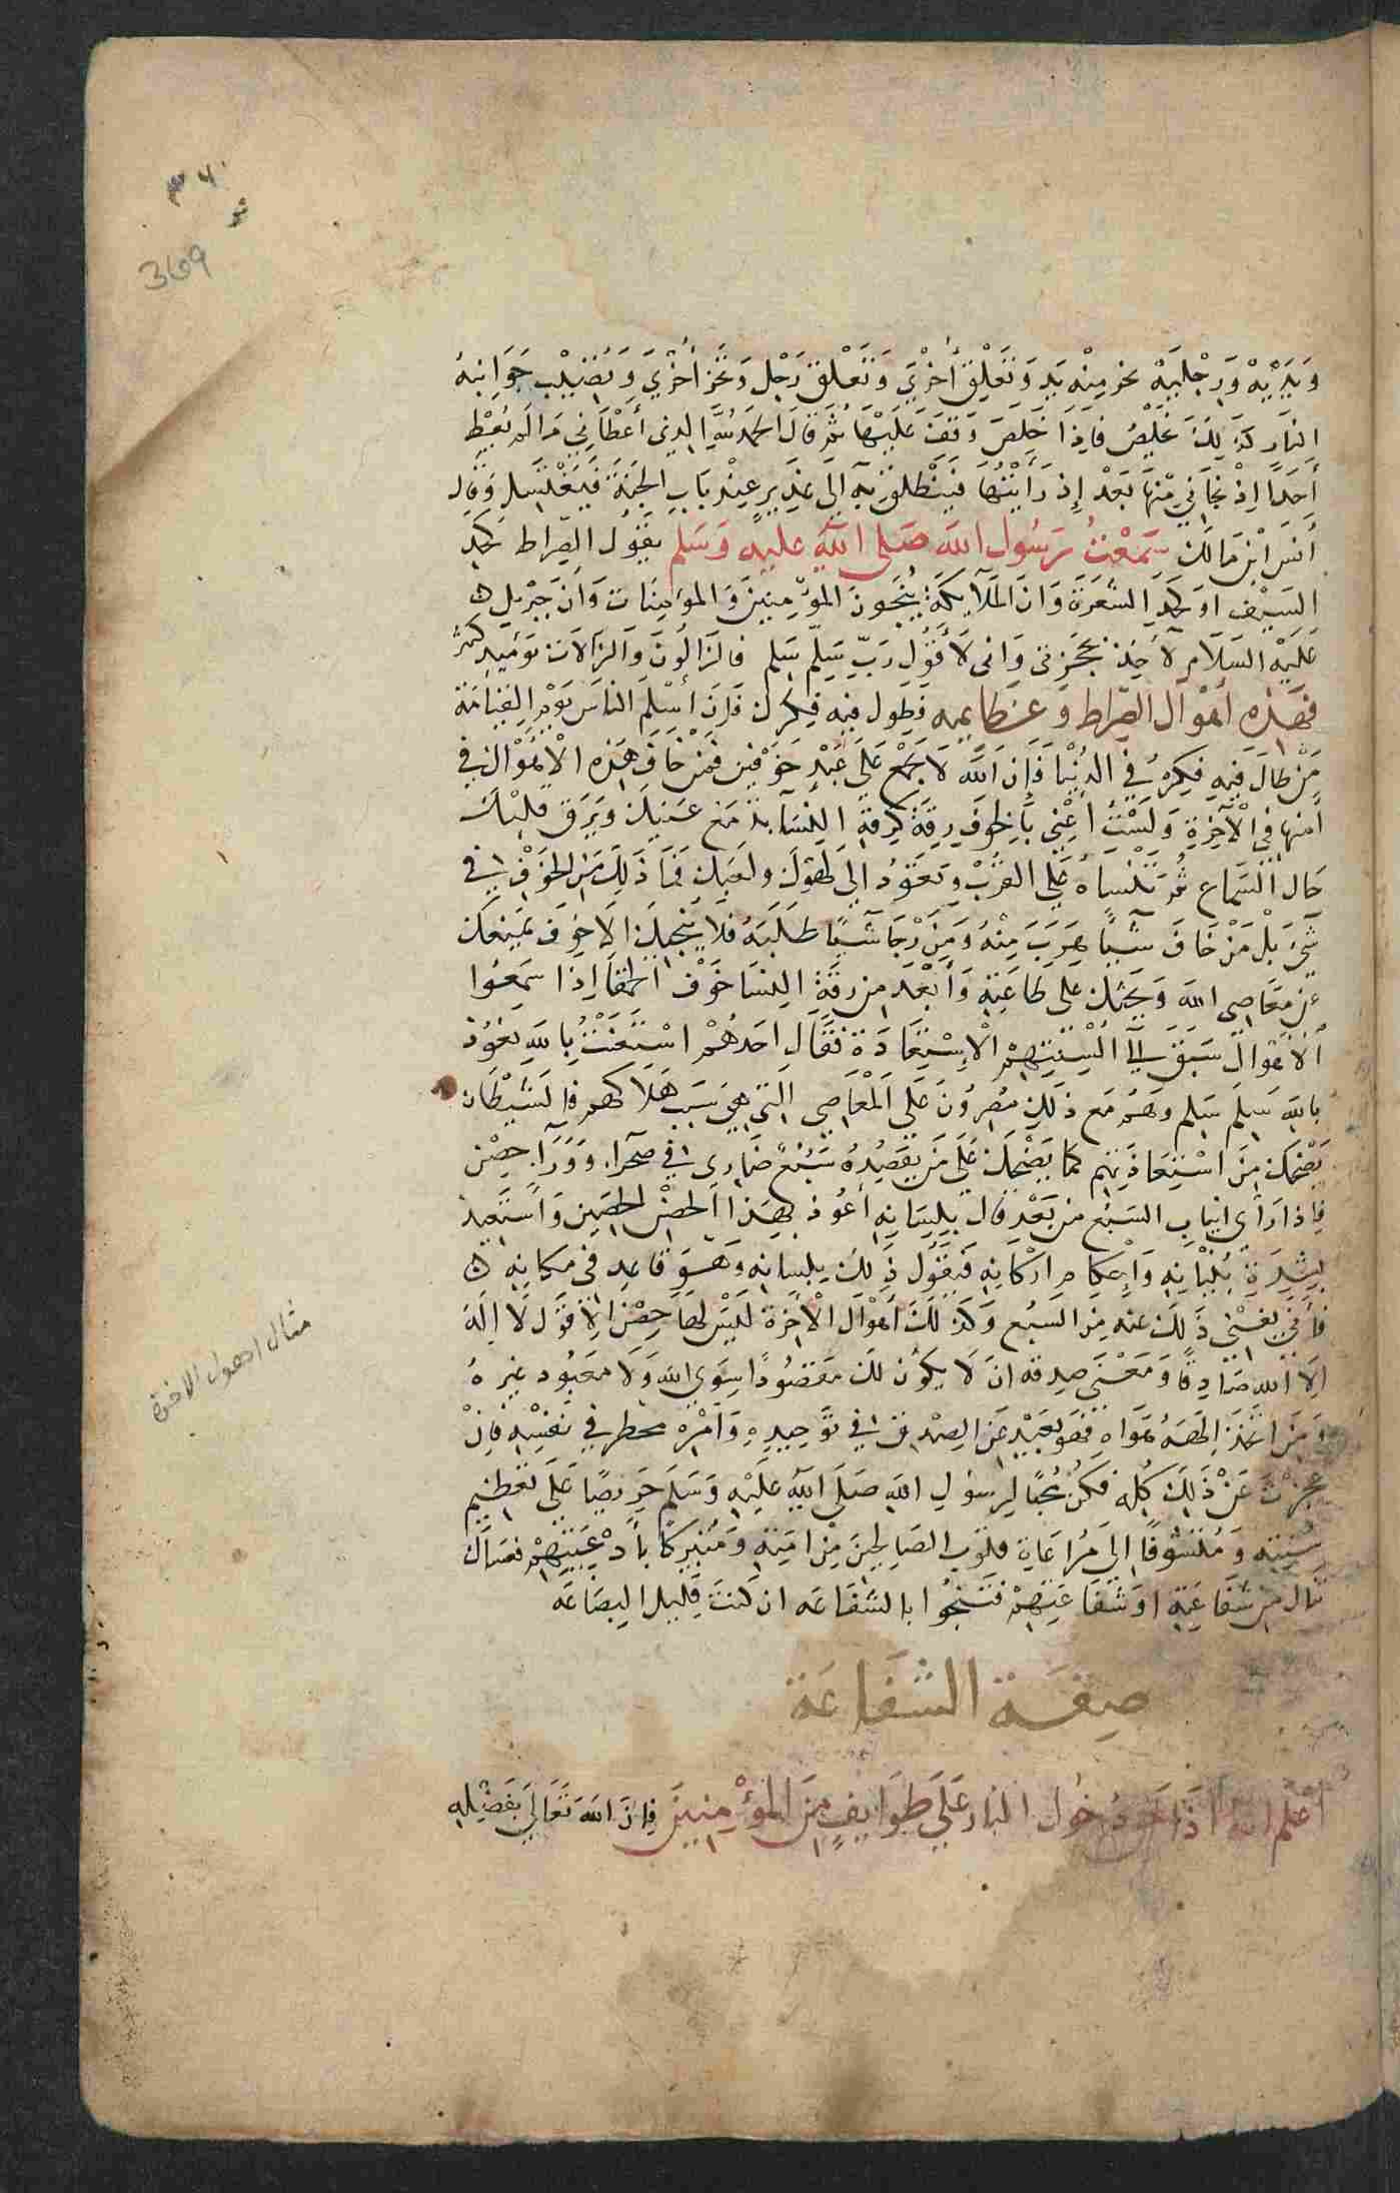 ٣٦٠
369
وَيَدَيْهِ وَرِجْلَيْهِ تخر مِنْه يَد وَتَعَلَّق أُخْرَى وَتَعَلَّق رِجْل وَتَخِرّ أُخْرَى وَتُصِيب جَوَانِبهُ
النار كَذَلِكَ يخلُصُ فَإِذَا خَلَصَ وَقَفَ عَلَيْهَا ثُمَّ قَالَ الحَمْدُ للهِ الذي أَعْطَانِي مَا لَم يُعْطِ
أَحَدًا إِذْ نجَانِي مِّنْهَا بَعْد إِذ رَأَيْتُهَا فَيَنْطَلِق بِهِ إِلَى غَدِير عِنْد بَاب الجَنَّة فَيَغْتَسِل وَقَال
أَنَس ابْن مَالك سَمِعْتُ رَسُول الله صَلى الله عليه وَسَلم يَقُول الصِّراط كحَدِّ
السَيْف او كَحَدِّ الشَعَرَة وَان المَلَآيكَة يُنَجُّونَ المُؤْمِنِينَ وَالمؤمِنَات وَان جِبْرِيل
عَلَيْهِ السَلَام لآخِذ بحُجزتى وَانى لَأَقُول رَبِّ سَلِّم سَلم فالزَّالُّونَ وَالزَالَّات يَوْمَئِذٍ كثير
فهَذِهِ أَهْوَال الصِّراط وَعَظَايمه فَطَول فيه فِكرك فَإِنَّ أَسْلَم الناس يَوْم القِيَامَة
مَنْ طَالَ فِيهِ فِكره فِي الدُنْيَا فَإِنَّ الله لَا يَجْمَع عَلَى عَبْدٍ خَوْفَين فَمَنْ خَافَ هَذِه الْأَهْوَال في
أمنها فِي الْآخِرَةِ وَلَسْتُ أَعْنِي بِالخوف رِقة كرقة النسَآ تدمَع عَيْنك وَيَرِق قلبك
حَال السَّمَاع ثُمَّ تَنْسَاهُ عَلَى القُرْب وتَعُود إلَى لهوك ولعبك فمَا ذَلِك من الخَوْف في
شَيء بَلْ مَنْ خَافَ شَيئًا هَرَبَ مِنْهُ وَمَنْ رَجَا شَيئًا طَلَبَهُ فلا يُنجيك الا خوف يمنعك
عن مَعَاصِي الله وَيحثك عَلى طاعَتِهِ وَأَبْعَد من رقَّةِ النسَا خَوْف الحمقَا إذا سَمِعُوا
الْأَهْوَال سَبَقَ إلَى أَلْسِنَتِهِمْ الْإسْتِعَاذة فَقَال احَدهُمْ اسْتَعَنْتُ بِاللهِ نعُوذ
بالله سَلم سَلم وهُم مَع ذَلِك مُصِرُّونَ عَلَى الْمَعَاصِي التي هِي سَبَب هَلَاكهم فالشَيْطَان
يَضْحَك مِنَ اسْتِعَاذَتِهِم كمَا يَضْحَك عَلَى مَن يَقصِدُهُ سَبُعٌ ضَارِى فِي صَحرآء وَوَرَآءه حِصْن
فاذا رَأى انياب السَبُع من بَعْد قال بلِسَانِهِ أَعُوذ بهَذَا الحصْن الحصين وَأَسْتَعِيذ
بشِدَة بُنْيَانِهِ وَإِحْكام ارْكَانِهِ فَيَقُول ذَلِكَ بِلسَانِه وَهُوَ قاعِد فى مَكانِه
فأنى يُغْنِى ذَلِكَ عنه مِن السَبُع وَكَذَلِكَ أَهْوَال الْآخِرَة لَيْسَ لهَا حِصْن الا قَول لَا اله
الَا الله صَادِقًا وَمَعْنَى صِدقه ان لَا يَكُون لَك مَقصُودًا سِوَى الله وَلَا مَعْبُود غيرهُ
وَمَنَ اتخذ إلَهَهُ هَوَاهِ فهو بَعِيد عَن الصِدْق في تَوْحِيدِهِ وَأمْرُه مخطر في نفسِهِ فإنْ
عجزتَ عَنْ ذَلِكَ كُلِّه فَكُن مُحِبًّا لِرَسُولِ الله صَلَى الله عَلَيْهِ وَسَلم حَرِيصًا عَلَى تَعْظِيم
سُنتِه وَمُتَشَوقًا إلَى مُرَاعَاة قلوب الصَالِحِينَ مِن امَتِه وَمُتَبَرِّكًا بأدْعِيَتِهِمْ فعسَاك
تَنال من شَفَاعَتِه او شفَاعَتِهِمْ فتَنجُوا بالشَفَاعَه ان كُنْتَ قَلِيل البِضَاعَه
مثال اهوال الاخرة
صِفَـة الشَفَاعَة
اعْلم انه اذَا حَقَّ دُخُول النار عَلَى طَوَايفٍ مِنَ المؤْمِنِينَ فإنَ الله تَعَالَى بِفَضْلِهِ